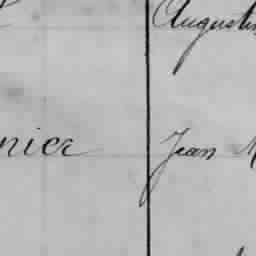 Augustin
nier Jean M